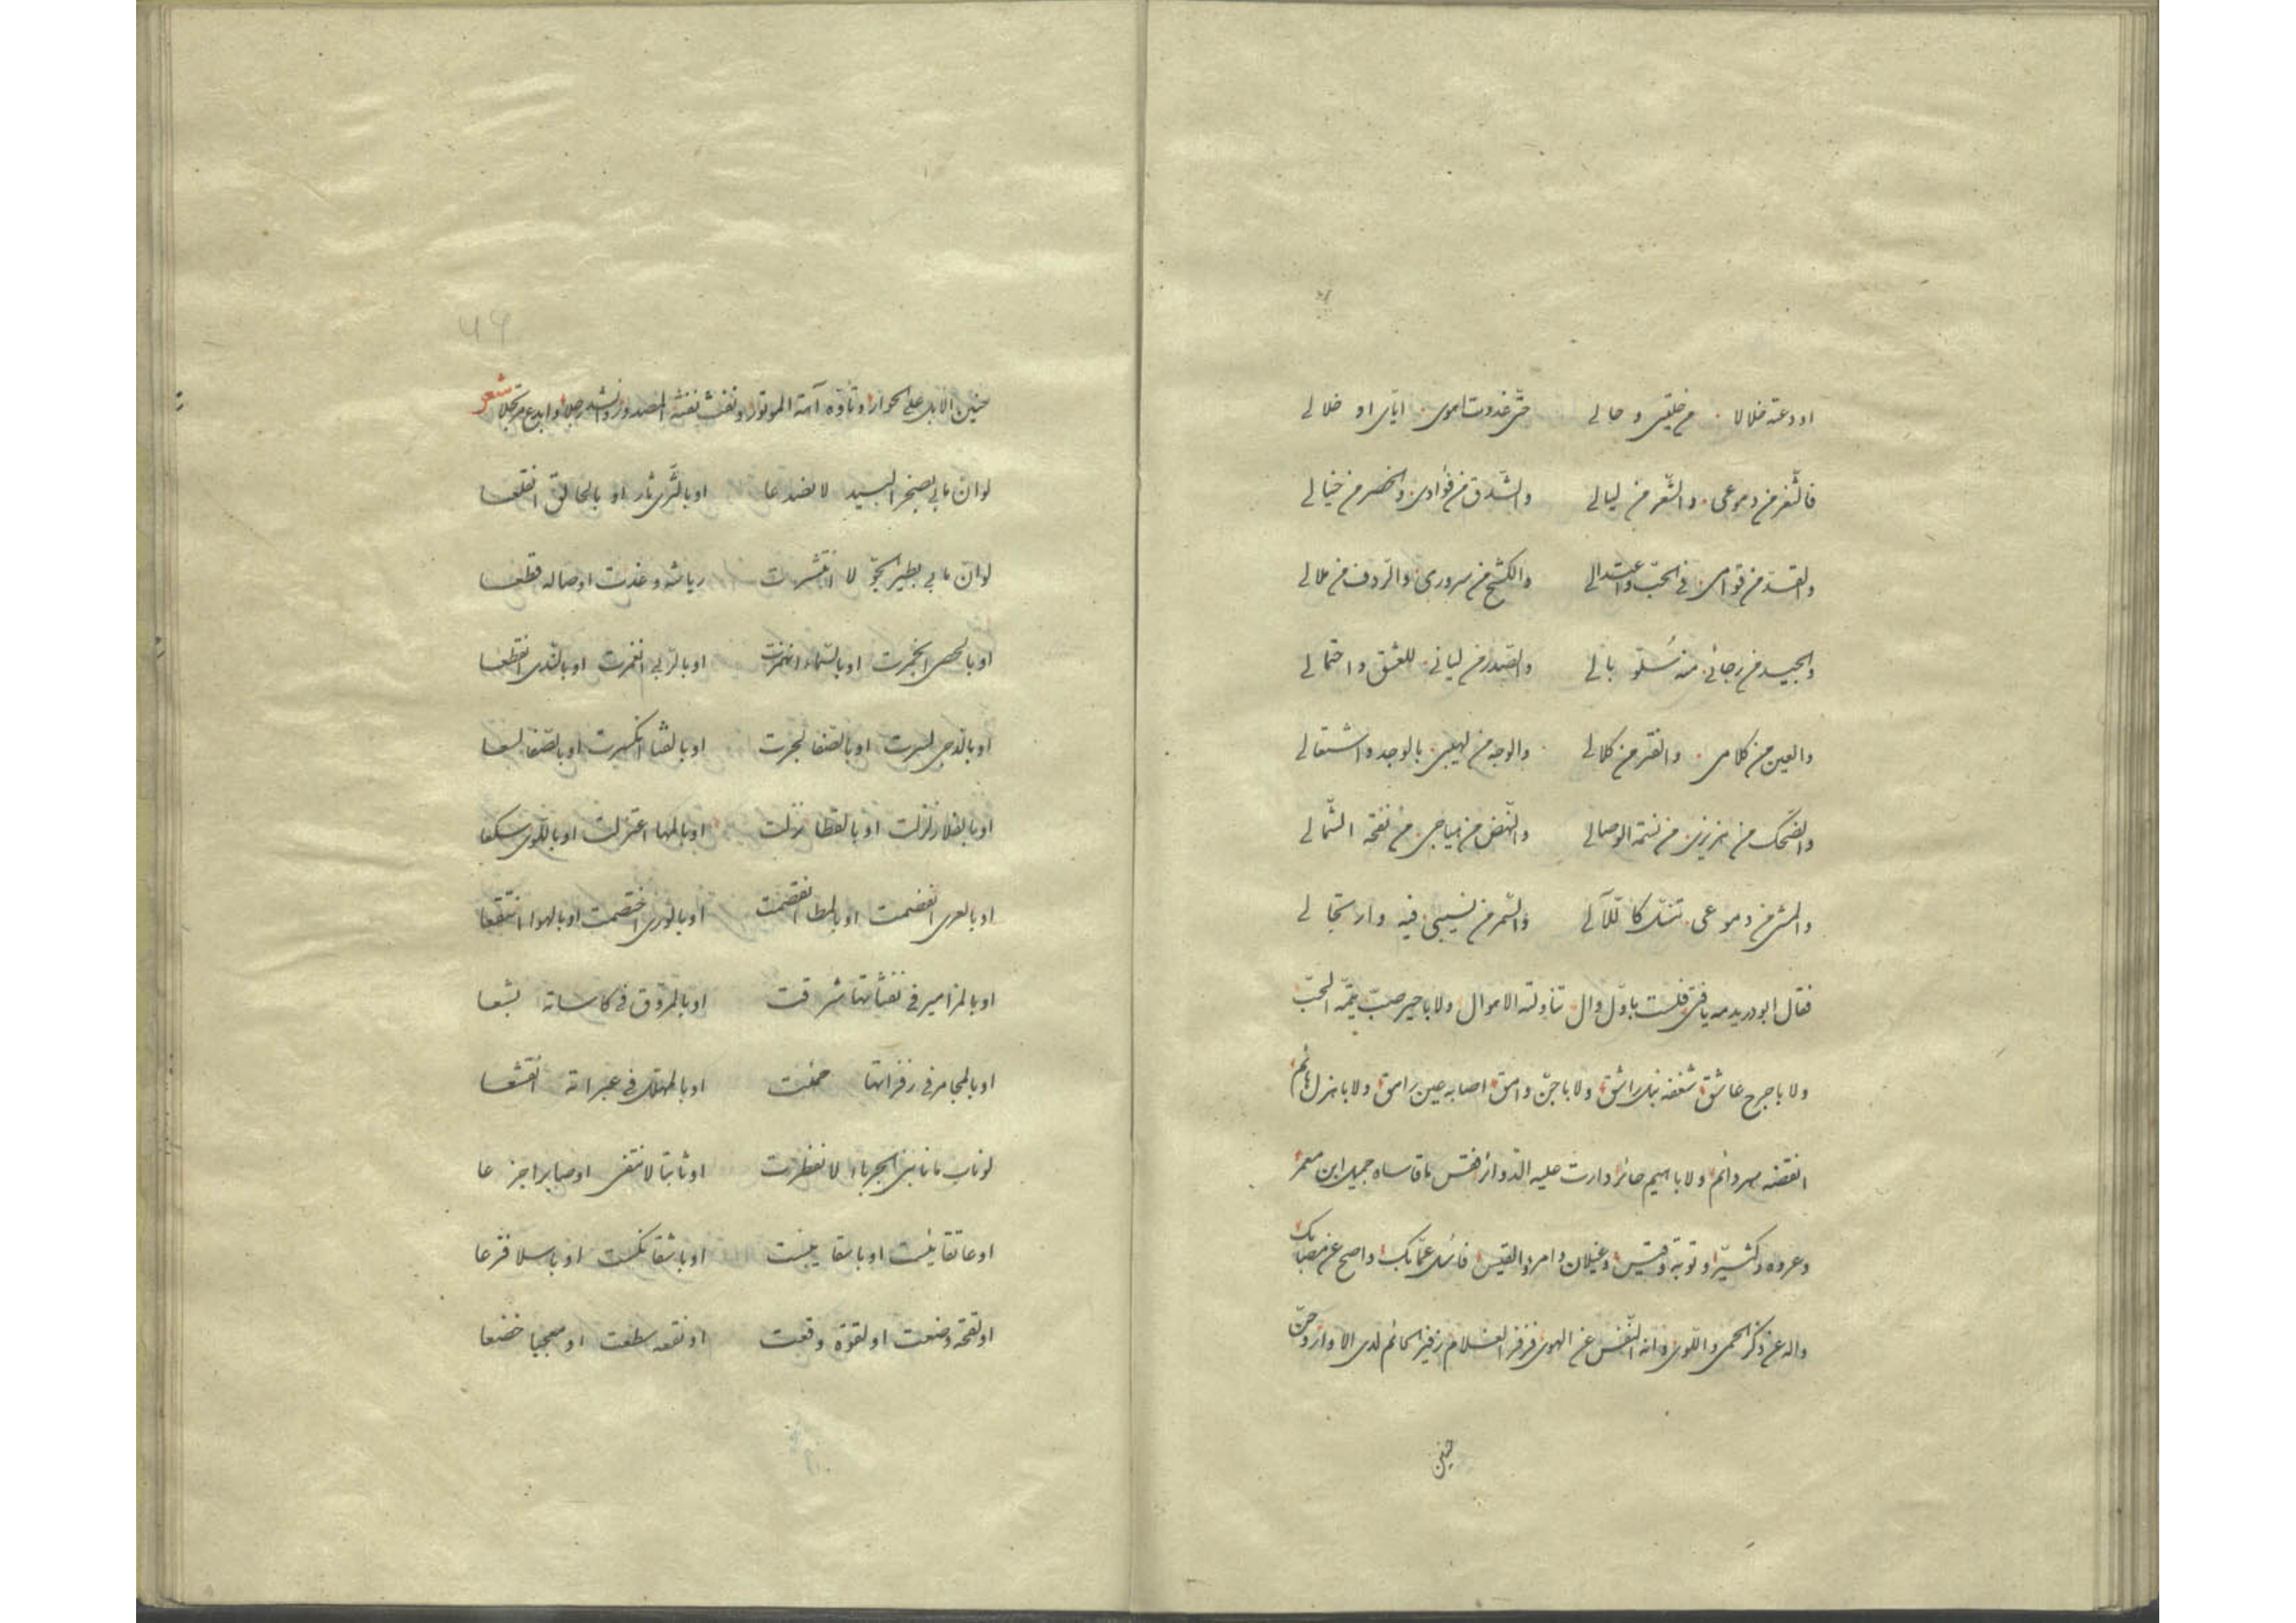 اودعته خلالا من خلتى وحالى حتى غدوت اموى اياى او خلالى
فالثغر من دموعى والشعر من ليالى والشدق من فؤادى والخصر من خيالى
والقد من قوامى فى الحب واعتدالى والكشح من سرورى والردف من ملالى
والجيد من رجائى منه سلو بالى والصدر من ليانى للعشق واحتمالى
والعين من كلامى والفتر من كلالى والوجه من لهيبى بالوجد واشتعالى
والضحك من نسمة الوصال والنهض من هياجى من نفحة الشمالى
والمشى من دموعى تنسل كاللآلى والسمر من نسيبى فيه وارتجالى
فقال ابو دريد مه يا فتى فلست باول وال تناولته الاموال ولا با حير صب تيمه الحب
ولا باجرح عاشق شغفه نبل راشق ولا باجن وامق اصابه عين رامق ولا باهزل هائم
انقضه سهر دائم ولا باهيم حائر دارت عليه الدوائر فقس ما قاساه جميل ابن معمر
وعروه وكثير وتوبة وقيس وغيلان وامرؤ القيس فاسل عما بك واصح عن مصابك
واله عن ذكر الحمى واللوى وانه النفس عن الهوى فزفر الغلام زفير الحائم لدى الاوار وحن
حنين
حنين الابل على الحوار وتاوه آهة الموتور ونفث نفثة المصدور وانشد رجلا وابدع مرتجلا شعر
لو ان ما بى بصخر البيد لانصدعا او بالثرى ثار او بالحالق انقلعا
لو ان ما بى بطير الجو لا انتشرت رياشه وغدت اوصاله قطعا
او بالحصى انجبرت او بالسماء انهمرت او بالربى انغمرت او بالندى انقطعا
او بالدجى لسرت او بالصفا لجرت او بالقنا انكسرت او بالصفا لسعا
او بالفلا زلزلت او بالقطا نزلت او بالمها اعتزلت او باللوى سكعا
او بالعرى انفصمت او بالمطا انقصمت او بالورى اختصمت او بالهوا انتقعا
او بالمزامير فى نفثاتها شرقت او بالمروق فى كاساته بشعا
او بالمجامر فى زفراتها خمدت او بالمهلل فى عبراته انقشعا
لو ناب ما نابنى الجرباء لانفطرت او ثابتا لانتفى او صابرا جزعا
او عاتقا يئست او باسقا يبست او باشقا نكست او باسلا فزعا
او لقحة وضعت او لقوة وقعت او نقعه سطعت او معجبا خضعا